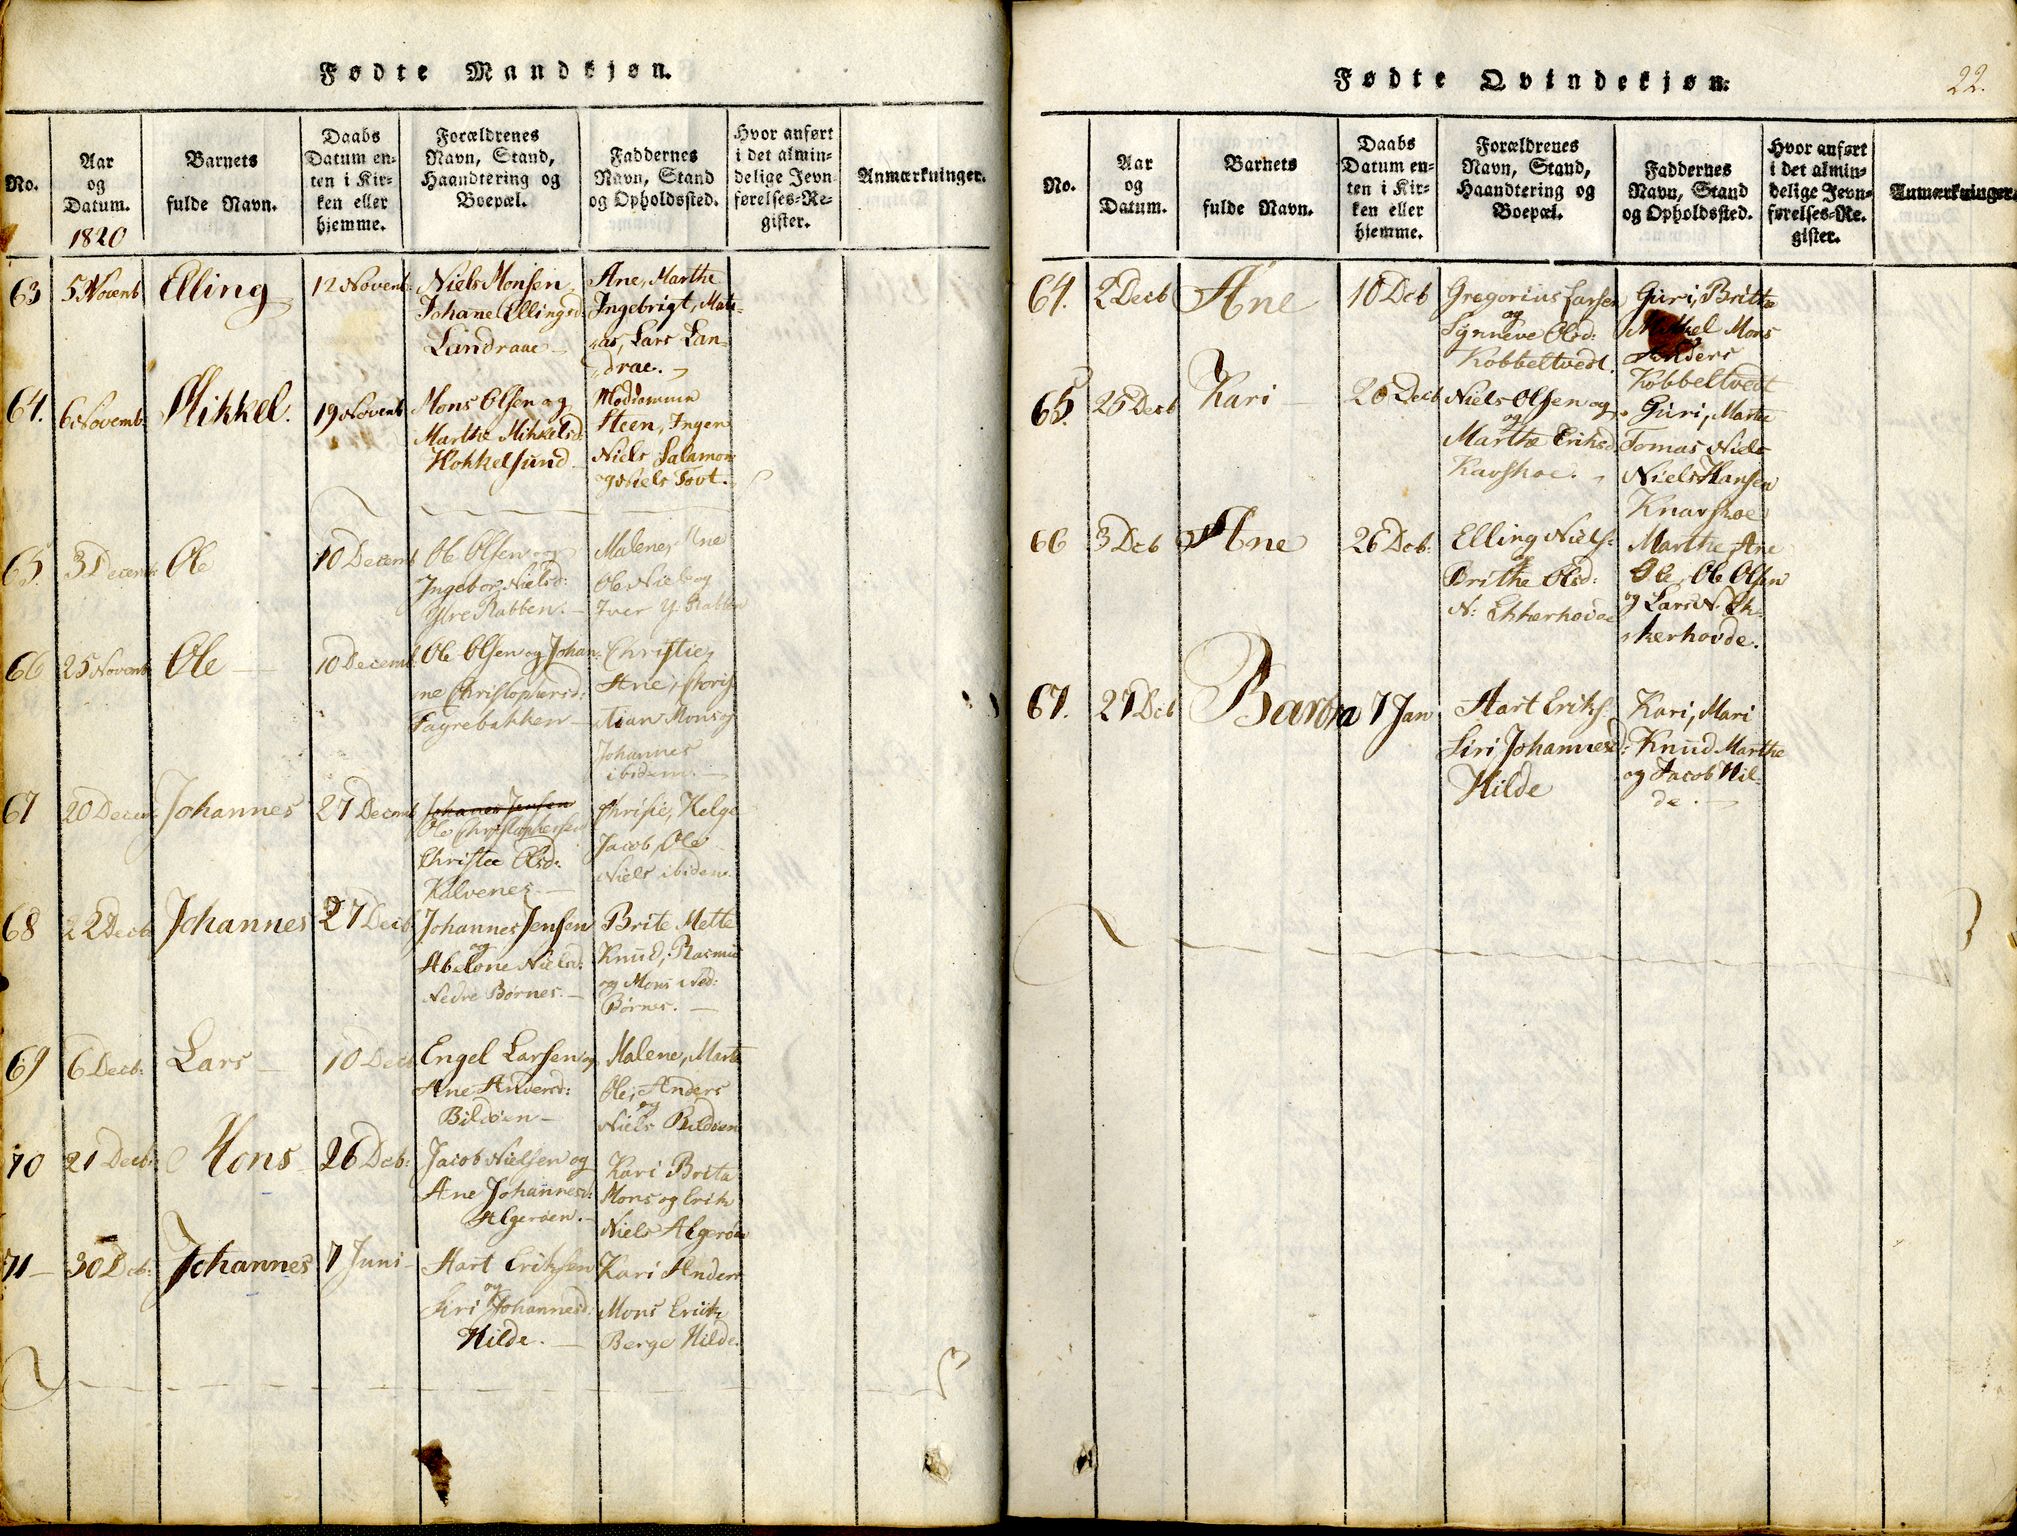 Fødte Mandkjøn.
No.
Aar
og
Datum.
1820
Barnets
fulde Navn.
Daabs
Datum en-
ten i Kir-
ken eller
hjemme.
Forældrenes
Navn, Stand,
Haandtering og
Boepæl.
Faddernes
Navn, Stand
og Opholdssted.
Hvor anført
i det almin-
delige Jevn-
førelses-Re-
gister.
Anmærkninger.
63
5 Novemb
Elling
12 Novemb:
Niels Monsen
Johane Ellingsd:
Landraae
Ane, Marthe
Ingebrigt, Math-
as, Lars Lan-
drae.
64.
6 Novemb.
Mikkel.
19 Novemb
Mons Olsen og
Marthe Mikkelsd:
Kokkelsund
Steen, Inger
Niels Salamon
og Niels Tovt.
65.
3 Decemb:
Ole
10 Decemb
Ole Olsen og
Ingebor Nielsd:
Yttre Rabben.
Malene, Ane
Ole, Niels og
Iver Y. Rabben
66
25 Novemb
Ole
10 Decemb:
Ole Olsen og Johan-
ne Christophersd:
Fagrebakken
Christie,
Ane, Chris-
tian Mons og
Johannes
ibidem.
67
20 Decem:
Johannes
27 Decemb
Johanes Jensen
Ole Christophersen
Christee Olsd:
Kalvenes
Chrisie, Helge
Jacob, Ole
Niels ibidem.
68
22 Decb
Johannes
27 Decb
Johannes Jensen
og
Abelone Nielsd:
Nedre Børnes.
Brite Mette
Knud, Rasmus
og Mons Ned:
Børnes.
69
6 Decb:
Lars
10 Decb
Engel Larsen og
Ane Andersd:
Bildøen
Malene, Marte
Ole, Anders
og
Niels Bildøen
70
21 Decb:
Mons
26 Dcb:
Jacob Nielsen og
Ane Johannesd:
Algerøen.
Kari Brita
Mons og Erik
Niels Algerøen
71
30 Dcb:
Johannes
7 Juni
Hart Eriksen
og
Siri Johannesd:
Hilde.
Kari Anders
Mons Erik
Berge Hilde.
Fødte Qvindekjøn.
22.
No.
Aar
og
Datum.
Barnets
fulde Navn.
Daabs
Datum en-
ten i Kir-
ken eller
hjemme.
Forældrenes
Navn, Stand,
Haandtering og
Boepæl.
Faddernes
Navn, Stand
og Opholdssted.
Hvor anført
i det almin-
delige Jevn-
førelses-Re-
gister.
Anmærkninger.
64.
2 Decb
Ane
10 Dcb
Gregorius Larsen
og
Synneve Olsd:
Kobbeltvedt.
Guri, Brithe
Mikkel Mons
Anders
Kobbeltvedt
65.
25 Decb
Kari
26 Decb
Niels Olsen og
og
Marthe Eriksd
Knarskoe.
Guri, Marthe
Tomas Niels
Niels Hansen
Knarskoe
66
3 Dcb
Ane
26 Dcb:
Elling Niels:
og
Brithe Olsd:
N: Ekkerhovde
Marthe Ane
Ole, Ole Olsen
og Lars N. Ek-
kerhovde.
67.
27 Dcb
Barbra
7 Jan
Hart Eriks.
Siri Johannesd:
Hilde
Kari, Mari
Knud Marthe
og Jacob Hil-
de.